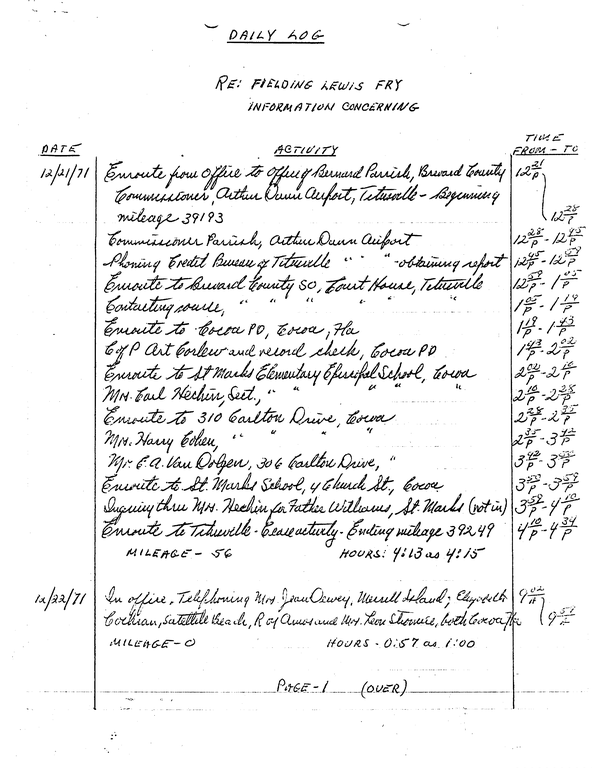 DAILY LOG
RE: FIELDING LEWIS FRY
INFORMATION CONCERNING
DATE ACTIVITY TIME FROM - TO
12/21/71 Enroute from office to Office of Bernard Parrish, Brevard County 12 21 P
Commissioner, Arthur Dunn Airport, Titusville - Beginning
mileage 39193 12 28 P
Commissioner Parrish, Arthur Dunn Airport 12 28 P - 12 45 P
Phoning Credit Bureau of Titusville " " - obtaining report 12 45 P - 12 59 P
Enroute to Brevard County SO, Court House, Titusville 12 59 P - 1 05 P
Contacting source, " " " " " 1 05 P - 1 19 P
Enroute to Cocoa PD, Cocoa, Fla 1 19 P - 1 43 P
C of P Art Corlew and record check, Cocoa PD 1 43 P - 2 02 P
Enroute to St Marks Elementary Episcopal School, Cocoa 2 02 P - 2 10 P
Mrs. Earl Hechin, Sect., " " " " " 2 10 P - 2 28 P
Enroute to 310 Carlton Drive, Cocoa 2 28 P - 2 35 P
Mrs. Harry Cohen, " " " " 2 35 P - 3 42 P
Mr. E.A. Van Dolzen, 306 Carlton Drive, " 3 42 P - 3 P
Enroute to St. Marks School, 4 Church St., Cocoa 3 P - 3 59 P
Inquiry thru Mrs. Hechin for Father Williams, St. Marks (not in) 3 59 P - 4 10 P
Enroute to Titusville - Cease activity - Ending mileage 39249 4 10 P - 4 34 P
MILEAGE - 56 HOURS: 4:13 as 4:15
12/22/71 In office, Telephoning Mrs Jean Dewey, Merritt Island; Elizabeth 9 02 A
Cochran, Satellite Beach, R of and Mrs. Leon, both Cocoa, Fla 9 59 A
MILEAGE - 0 HOURS - 0:57 as 1:00
PAGE - 1 (OVER)